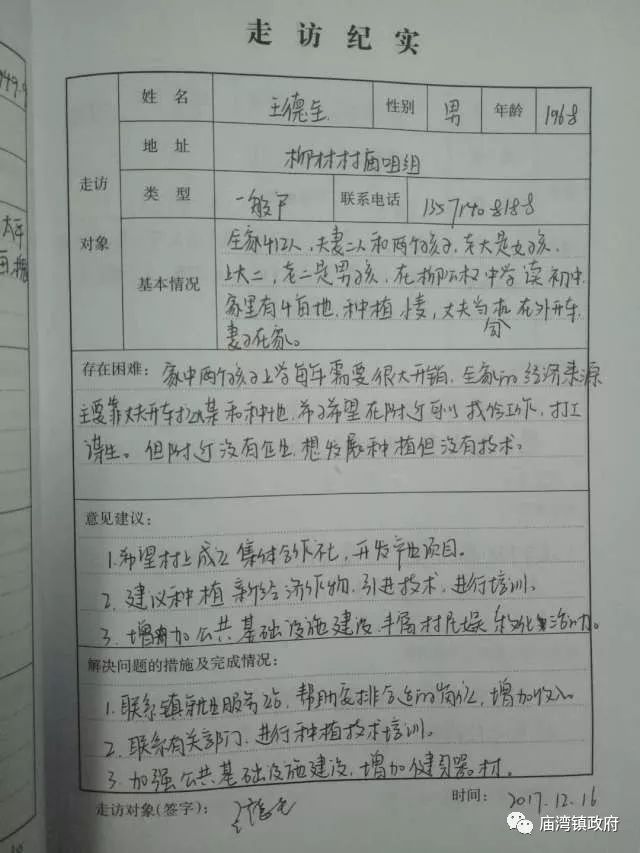 走访纪实
走访对象
姓名 王德全 性别 男 年龄 1968
地址 柳林村庙咀组
类型 一般户 联系电话 13571408188
基本情况
全家4口人,夫妻二人和两个孩子,老大是女孩,
上大二,老二是男孩,在柳林中学读初中,
家里有4亩地,种植小麦,丈夫当司机在外开车,
妻子在家。
存在困难: 家中两个孩子上学每年需要很大开销,全家的经济来源
主要靠丈夫开车拉煤和种地,希望在附近可以找份工作,打工
谋生。但附近没有企业,想发展种植但没有技术。
意见建议:
1.希望村上成立集体合作社,开发产业项目。
2.建议种植新经济作物,引进技术,进行培训。
3.增加公共基础设施建设,丰富村民娱乐文化生活。
解决问题的措施及完成情况:
1.联系镇就业服务站,帮助安排合适的岗位,增加收入。
2.联系有关部门,进行种植技术培训。
3.加强公共基础设施建设,增加健身器材。
走访对象(签字): 时间: 2017.12.16
庙湾镇政府